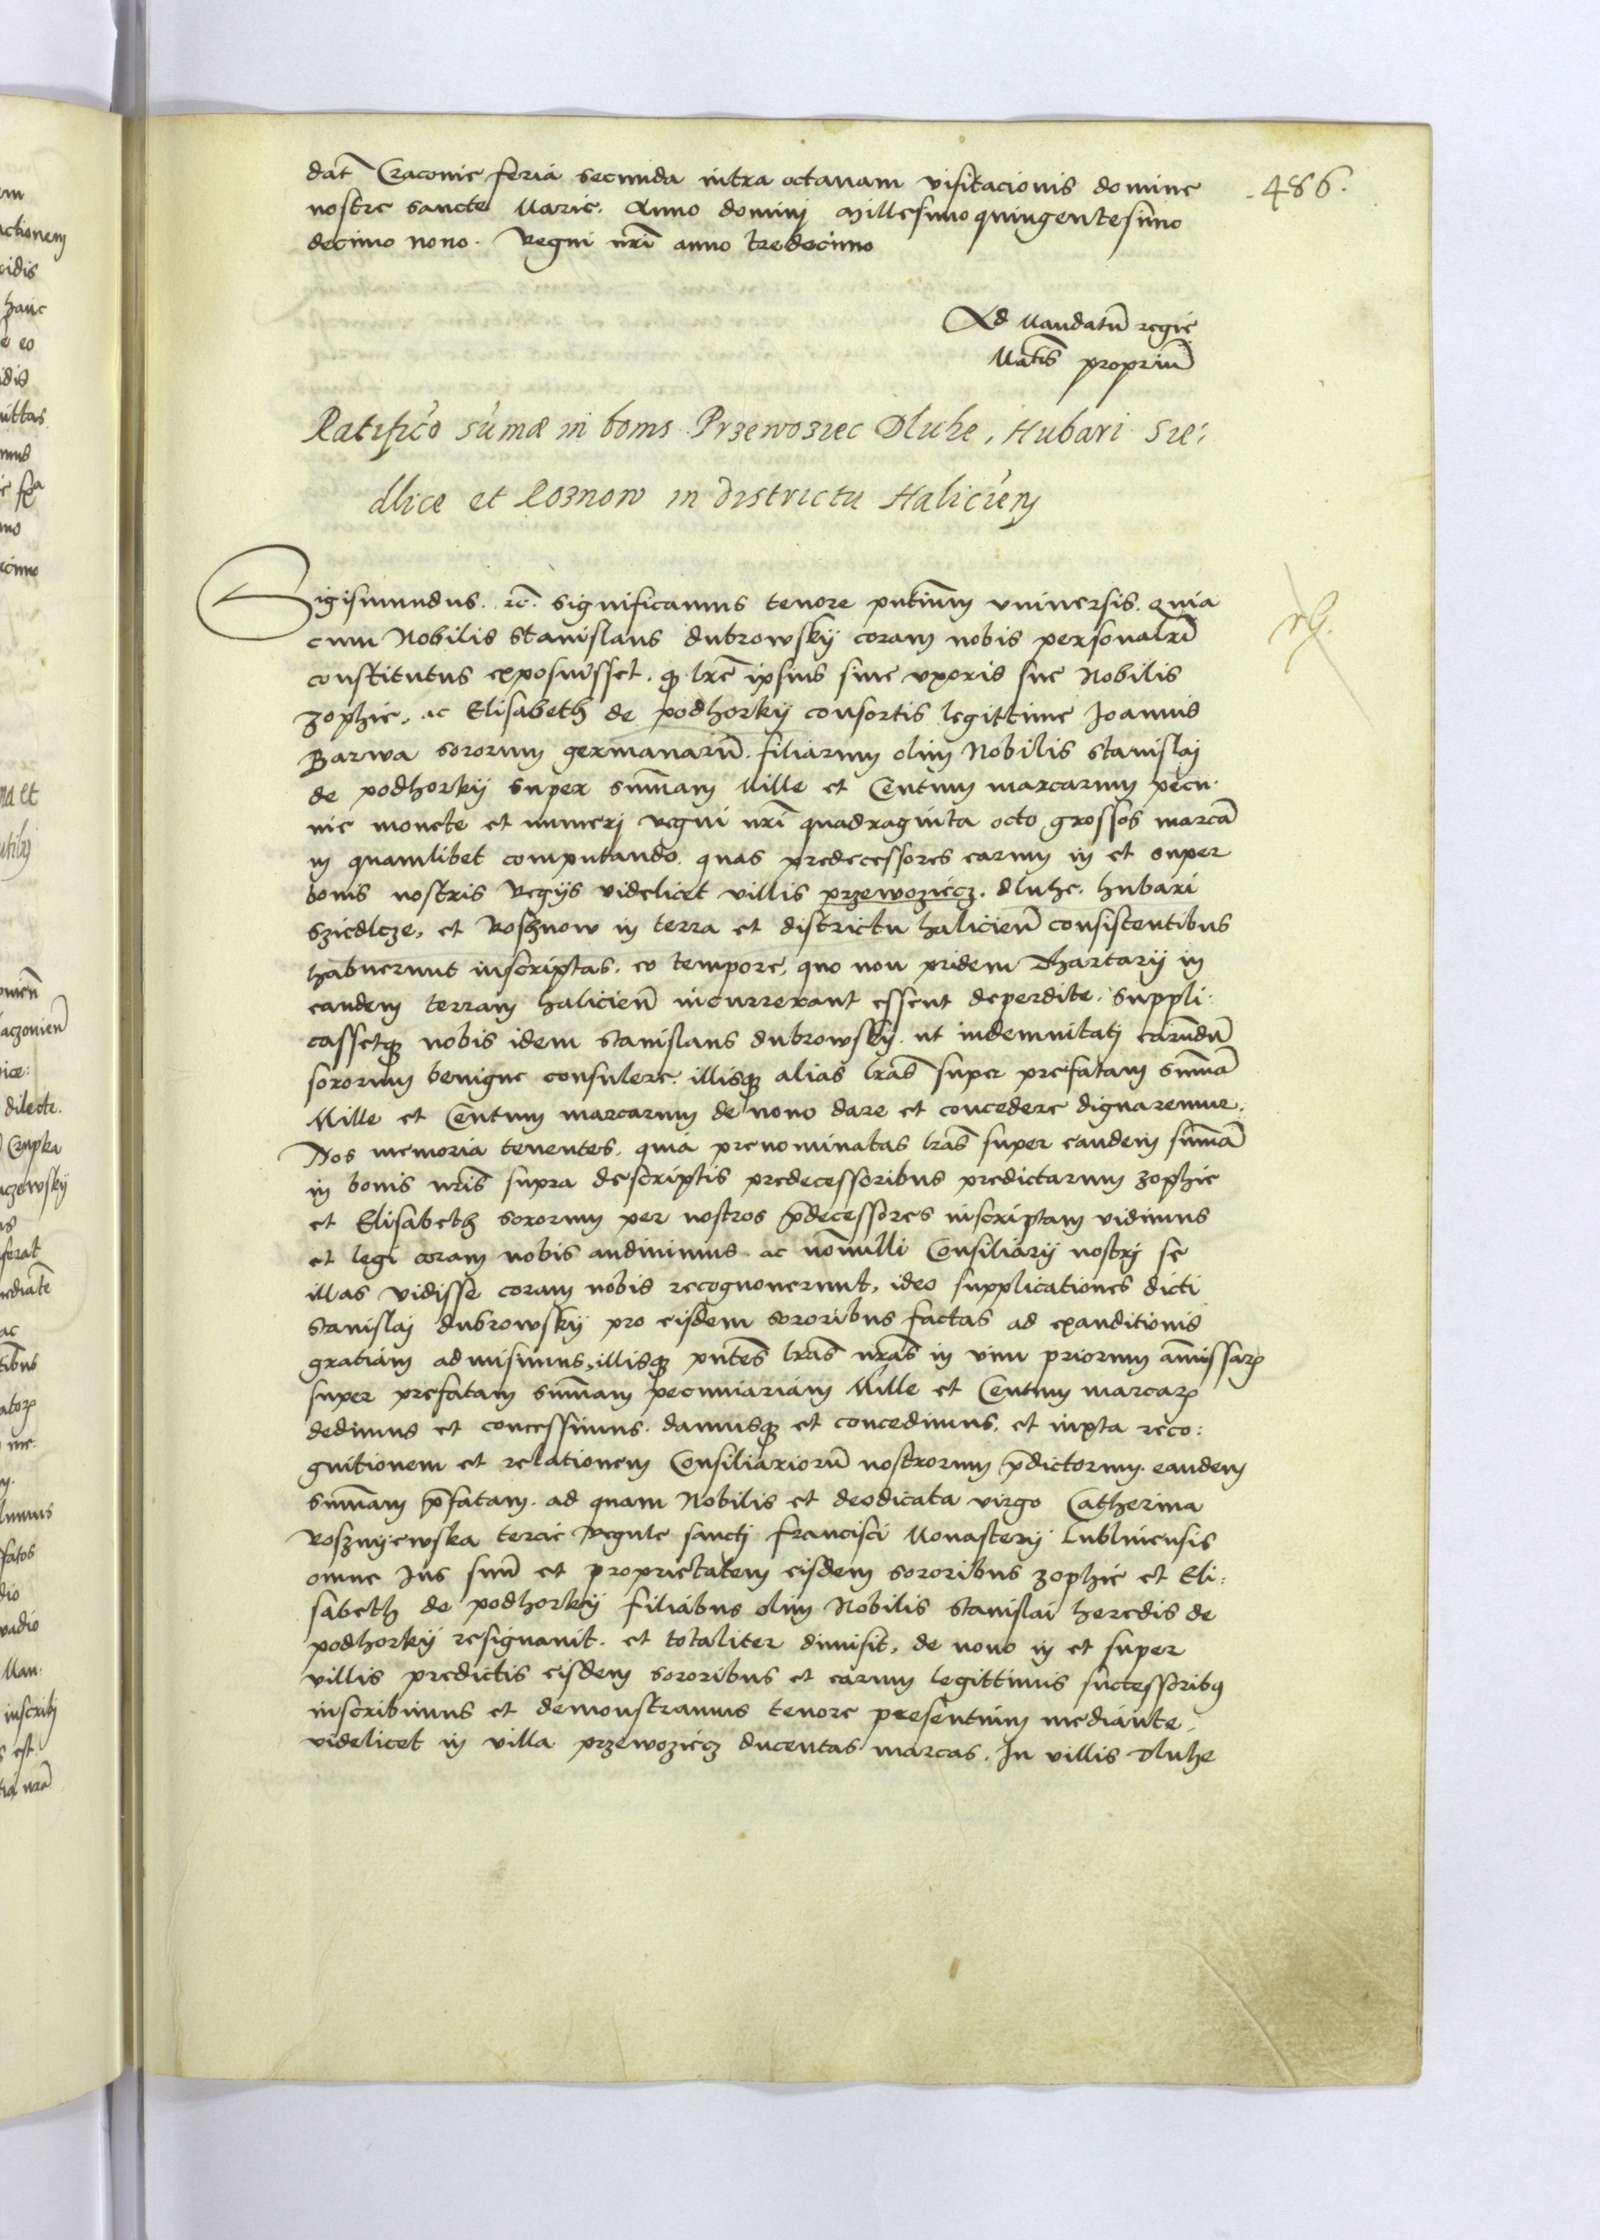 dat̄ Cracovie feria secunda intra octavam visitacionis domine
nostre sancte Marie. Anno dominj Millesimo quingentesimo
decimo nono. Regni nrī anno tredecimo
-486.
Ad Mandatū regie
Matīs propriū
Ratificō sūmæ in bonis Przewoziec Dluhe, Hubari Sie:
dlice et Roznow in districtu Haliciēn
Sigismundus. rc̄. significamus tenore pn̄tium vniversis. Quia
cum Nobilis Stanislaus dubrowskÿ coram nobis personalr̄
constitutus exposuisset. q lrē ipsius sive vxoris sue Nobilis
Zophie, ac Elisabeth de podhorkÿ consortis legittime Joannis
Barwa sororum germanarū. filiarum olim Nobilis Stanislaj
de podhorkÿ super sum̄am Mille et Centum marcarum pecu-
nie monete et numerj regni nrī quadraginta octo grossos marcā
in quamlibet computando. quas predecessores earum in et super
bonis nostris Regÿs videlicet villis przewoziecz. dluhe. hubari
Sziedlcze, et Rosznow in terra et districtu halicien̄ consistentibus
habuerunt inscriptas. eo tempore, quo non pridem Thartarÿ in
eandem terram halicien̄ incurrerant essent deperdite. Suppli-
cassetq nobis idem Stanislaus dubrowskÿ. ut indemnitatj earūdē
sororum benigne consulere. illisq alias lrās super prefatam sum̄ā
Mille et Centum marcarum de novo dare et concedere dignaremur.
Nos memoria tenentes. quia prenominatas lrās super eandem sum̄ā
in bonis nrīs supra descriptis predecessoribus predictarum zophie
et Elisabeth sororum per nostros p̄decessores inscriptam vidimus
et legi coram nobis audivimus. ac nōnulli Consiliarÿ nostrj se
illas vidisse coram nobis recognoverunt, ideo supplicationes dicti
Stanislaj dubrowskÿ pro eisdem sororibus factas ad exauditionis
gratiam admisimus, illisq pn̄tes lrās nrās in vim priorum am̄issarꝝ
super prefatam sum̄am pecuniariam Mille et Centum marcarꝝ
dedimus et concessimus. damusq et concedimus. et iuxta reco:
gnitionem et relationem Consiliariorū nostrorum p̄dictorum. eandem
sum̄am p̄fatam. ad quam Nobilis et deodicata virgo Catherina
Rosznÿewska tercie Regule sanctj francisci Monasterÿ Lublinensis
omne Jus suū et proprietatem eisdem sororibus zophie et Eli:
sabeth de podhorkÿ filiabus olim Nobilis Stanislai heredis de
podhorkÿ resignavit. et totaliter dimisit, de novo in et super
villis predictis eisdem sororibus et earum legittimis successoribꝯ
inscribimus et demonstramus tenore presentium mediante.
videlicet in villa przewoziecz ducentas marcas. In villis dluhe